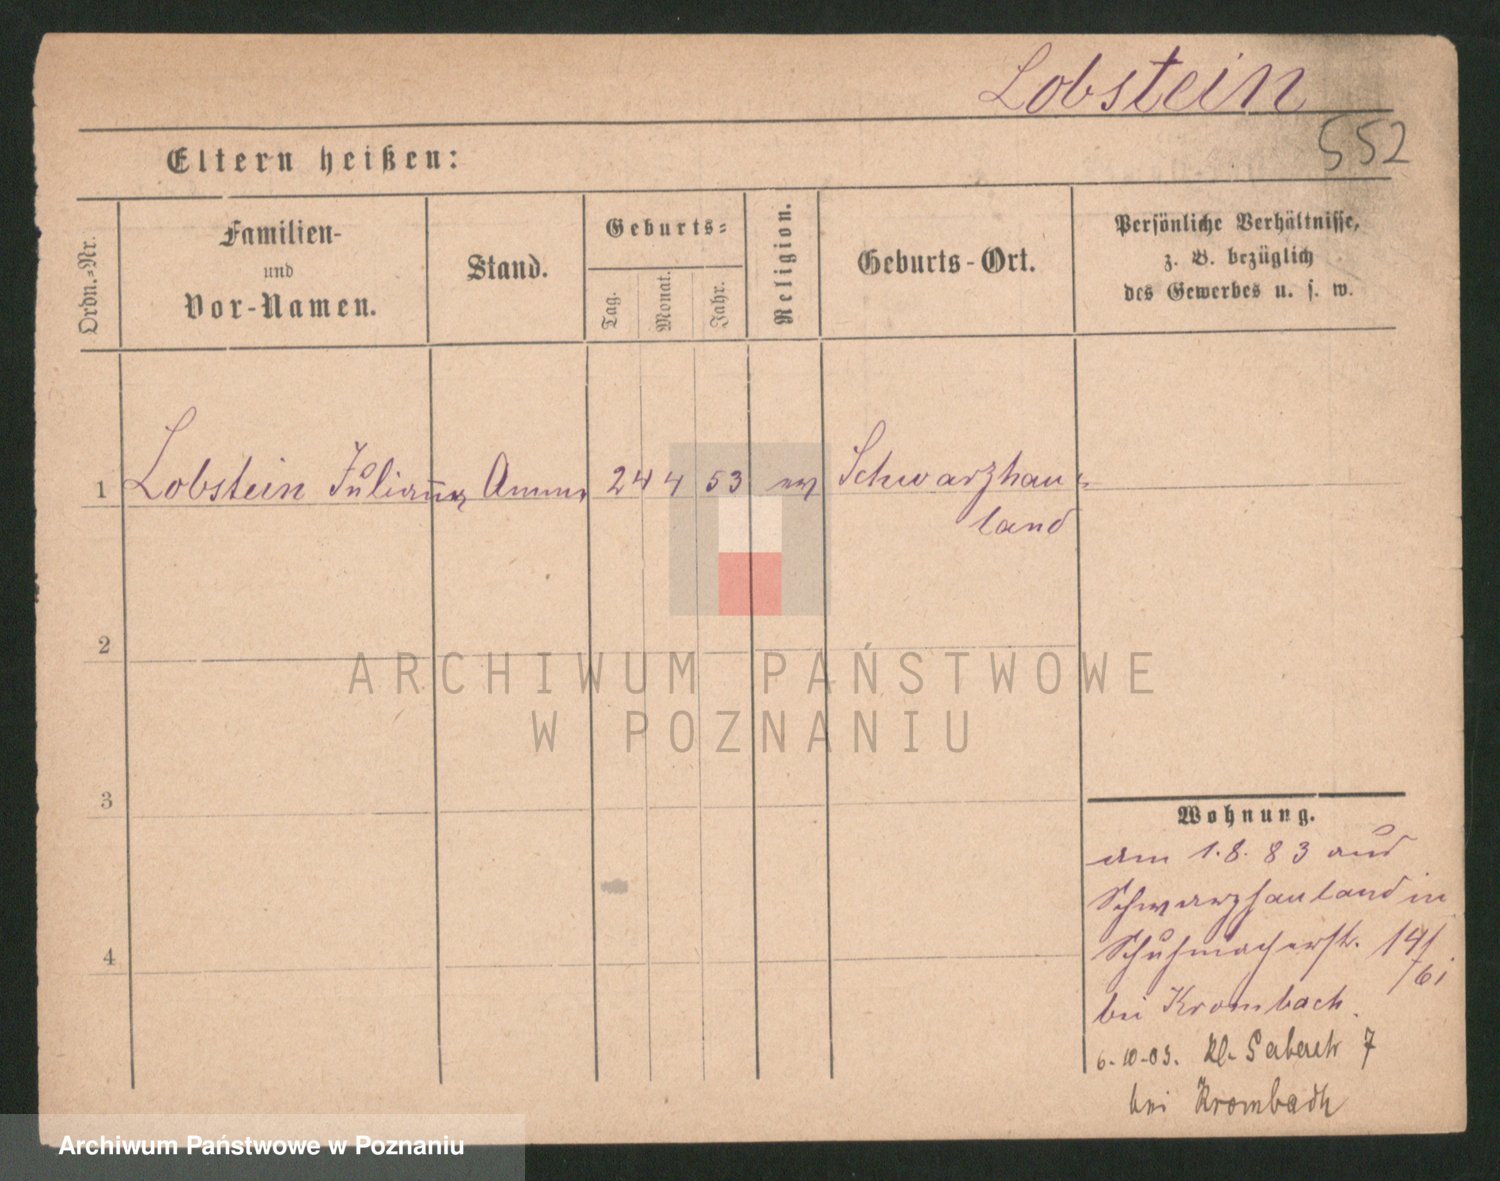 Lobstein
552
Eltern heißen:
Ordn.-Nr.
Familien-
und
Vor-Namen.
Stand.
Geburts-
Tag.
Monat.
Jahr.
Religion.
Geburts-Ort.
Persönliche Verhältnisse,
z. B. bezüglich
des Gewerbes u. s. w.
1 Lobstein Juliana Amme 24 4 53 ev Schwarzhau-
land
2
3
4
ARCHIWUM PAŃSTWOWE
W POZNANIU
Wohnung.
am 1.8.83 aus
Schwarzhauland in
Schuhmacherstr. 14/
bei Krombach.
6.10.03. Kl.
7
bei Krombach
Archiwum Państwowe w Poznaniu